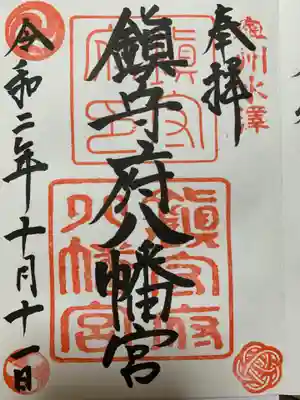 奥州水澤
奉拝
鎮守府八幡宮
鎮守府印
鎮守府八幡宮
令和二年十月十一日